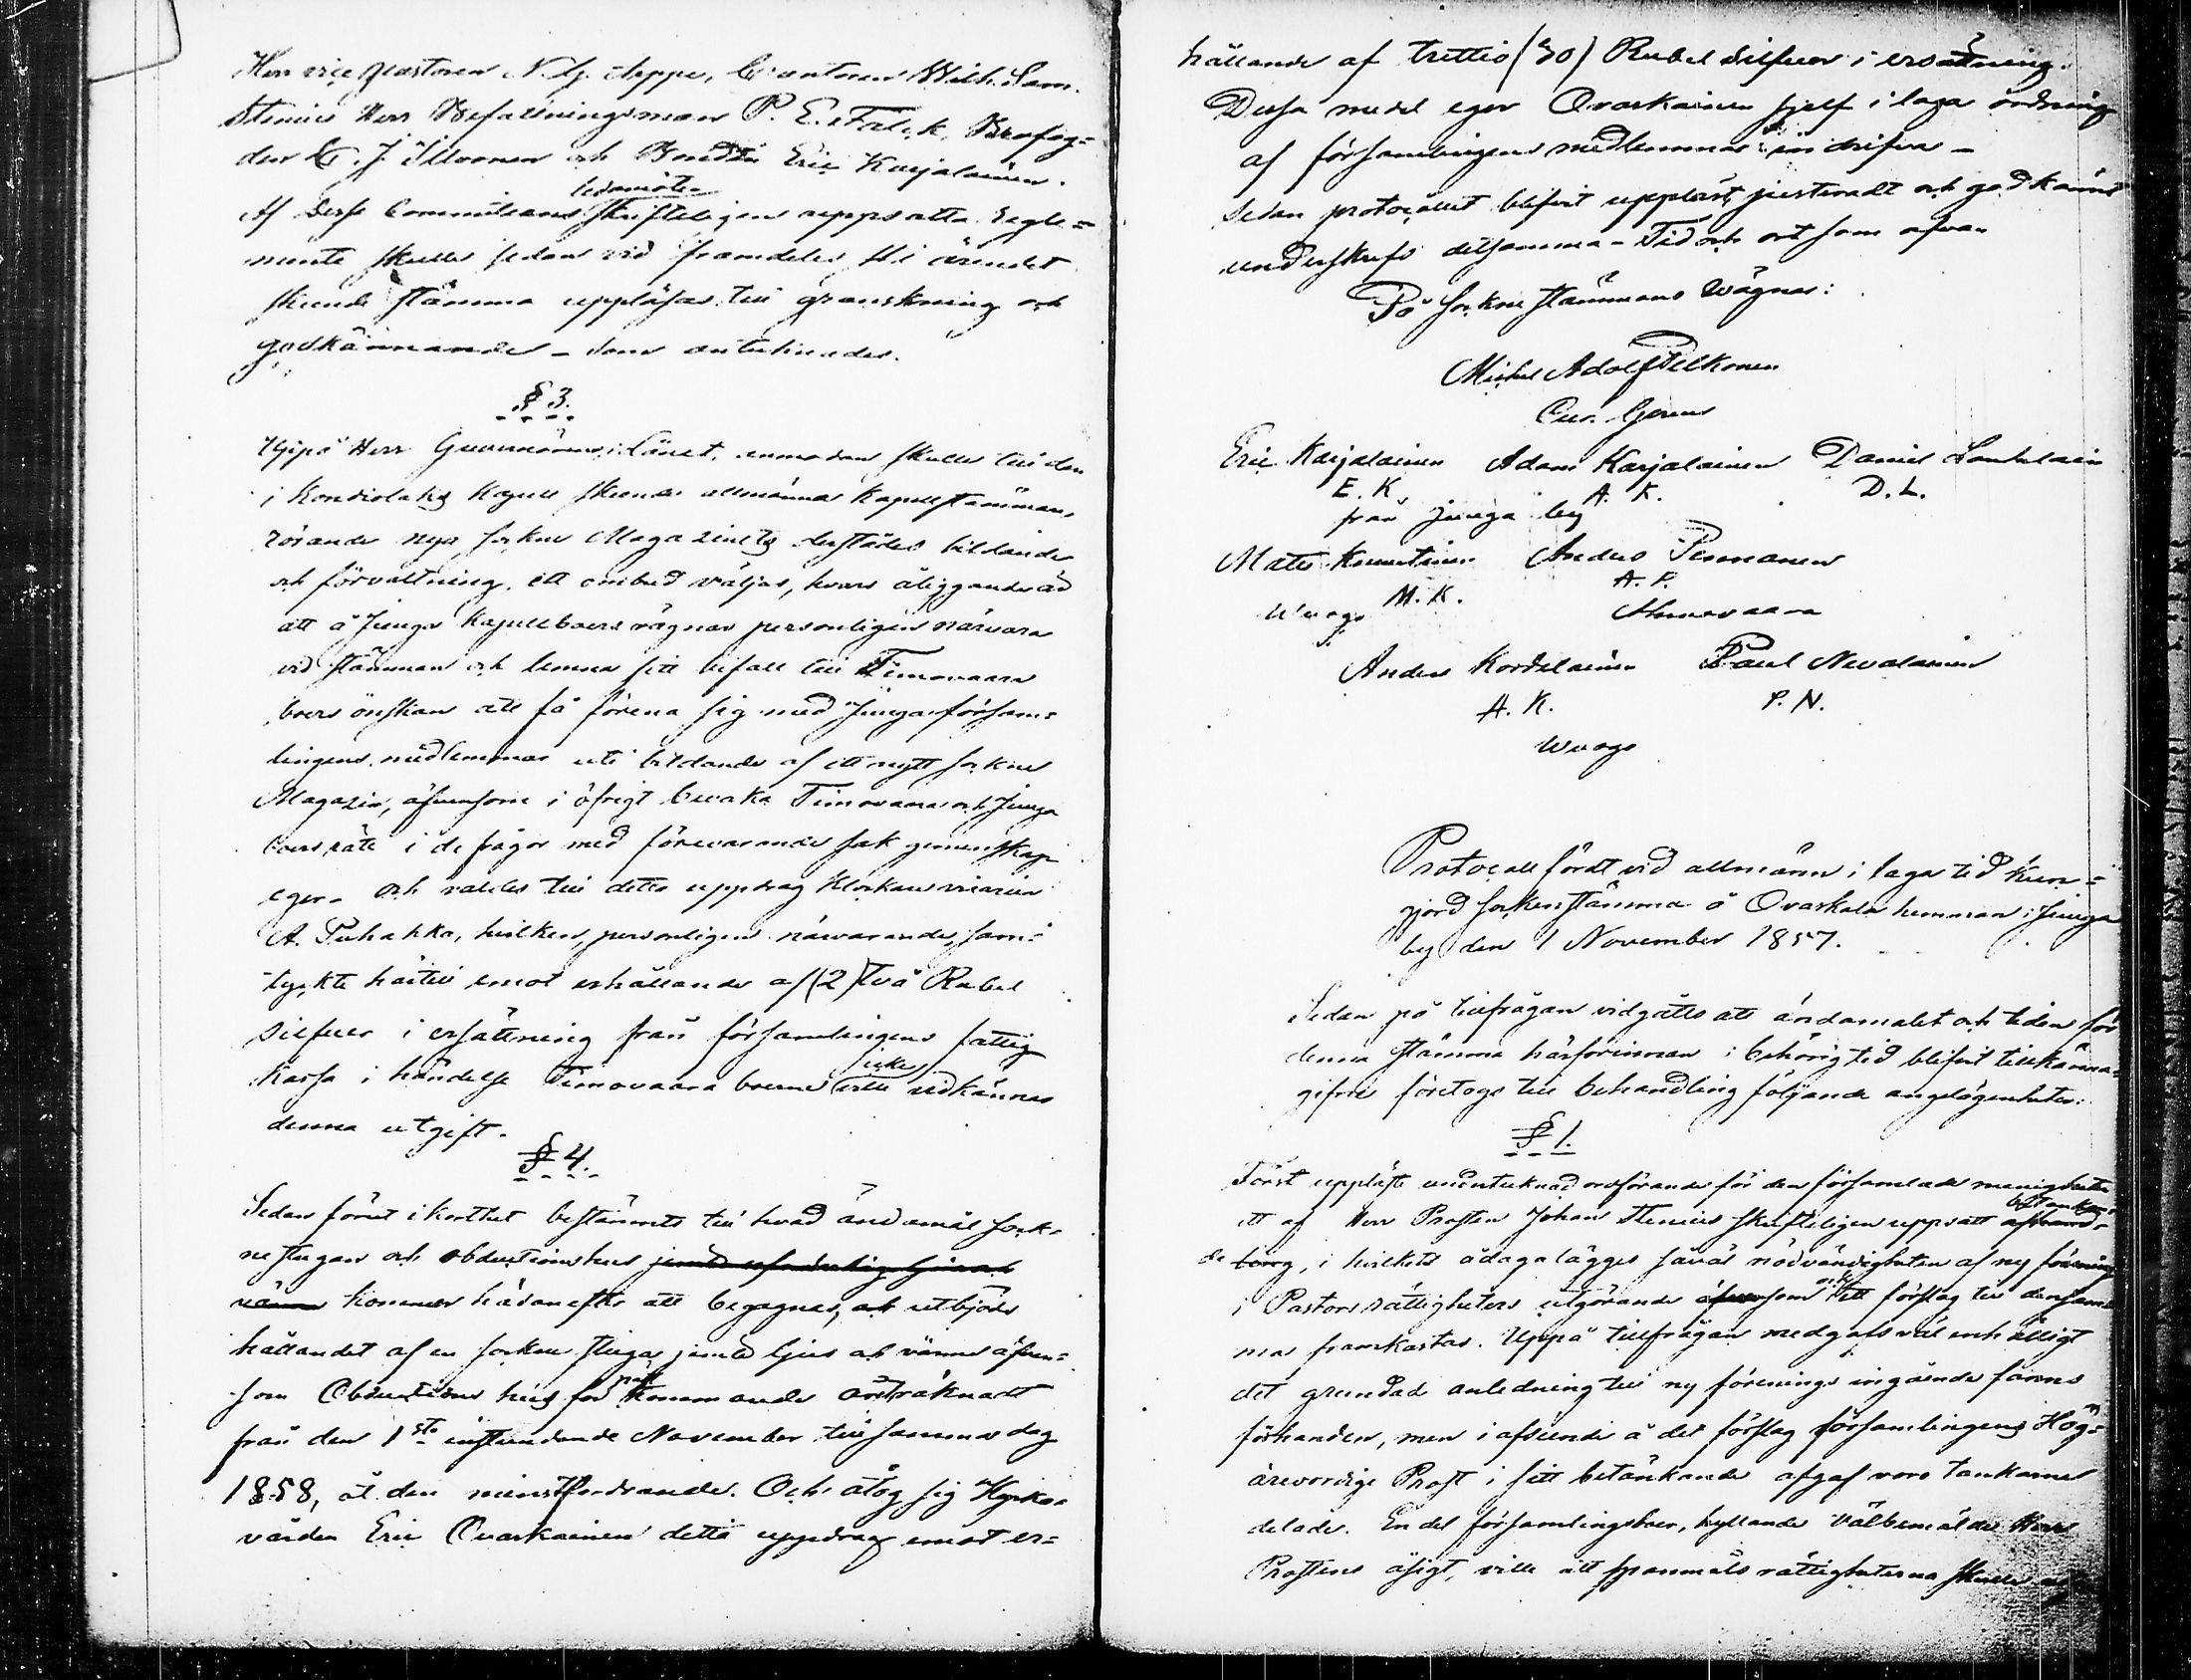 Herr vice Pastoren N. G. Arppe, Cantoren Wilh. Sam.
Stenius Herr Befallningsman P. E. Falck, Krofog=
den C. J. Ilvonen och Bonden Eric Karjalainen.
ledamöter
Af desse Committeens skrifteligen uppsatta regle=
mente skulle sedan vid framdeles till ärendet
skeende stämma uppläsas till granskning och
godkännande – som antecknades.
§ 3.
Uppå Herr Guvernörens i Länet, anmodan skulle till den
i Kondiolaks Kapell skeende allmänna Kapellstämman,
rörande nya sockne Magasinets derstädes bildande
och förvaltning, ett ombud väljas, hvars åliggande är
att å Juuga Kapellboers vägnar personligen närvara
vid stämman och lemna sitt bifall till Timovaara
boers önskan att få förena sig med Juuga försam=
lingens medlemmar uti bildande af ett nytt sockne
Magasin, äfvensom i öfrigt bevaka Timovaara och Juuga
boers rätt i de frågor med förevarande sak gemenskap
eger. – Och valdes till detta uppdrag Klockaren
A. Puhakka, hvilken, personligen närvarande, sam=
tyckte härtill emot erhållande af (2) två Rubel
Silfver i ersättning från församlingens fattig
kassa i händelse Timovaara boerne icke ville vidkännas
denna utgift.
§ 4.
Sedan förut i korthet bestämts till hvad ändamål sock=
nestugan och obductionshus jemte
värme kommer hädanefter att begagnas, och utbjöds
hållandet af en sockne stuga jemte ljus och värme äfven=
som Obductions hus för näst kommande året räknadt
från den 1sta instundande November till samma dag
1858, åt den minstfordrande. Och åtog sig Kyrko=
värden Eric Ovaskainen detta uppdrag emot er=
hållande af trettio (30) Rubel Silfver i ersättning.
Dessa medel eger Ovaskainen sjelf i laga ordning
af församlingens medlemmar indrifva –
Sedan protocollet blifvit uppläst, justeradt och godkändt
underskrefs detsamma – Tid och ort som ofvan
På Sockne stämmans vägnar:
Michel Adolf Pelkonen
Cur. Gerens
Eric Karjalainen Adam Karjalainen Daniel Lankelain
E. K. A. K. D. L.
från Juuga by
Matts Knuutinen Anders Pesonanen
M. K. A. P.
Wuogo Ahmovaara
Anders Kordelainen Paul Nevalainen
A. K. P. N.
Wuogo
Protocoll fördt vid allmänn i laga tid kun=
gjord sockenstämma å Ovaskala hemman i Juuga
by den 1 November 1857.
Sedan på tillfrågan vidgåtts att ändamålet och tiden för
denna stämma härförinnan i behörig tid blifvit tillkänna=
gifven företogs till behandling följande angelägenheter:
§ 1.
Först uppläste undertecknad ordförande för den församlade menigheten
ett af Herr Prosten Johan Stenius skrifteligen uppsatt betänkan=
de, i hvilket ådagalägges såväl nödvändigheten af ny förening
i Pastors rättigheters utgörande som ock ett förslag till densam=
ma framkastas. Uppå tillfrågan medgafs väl enhälligt
det grundad anledning till ny förenings ingående fanns
förhanden, men i afseende å det förslag församlingens Hög=
ärevordige Prost i sitt betänkande afgaf voro tankarne
delade. En del församlingsboer, hyllande välbemälde Herr
Prostens åsigt, ville att spanmåls rättigheterna skulle